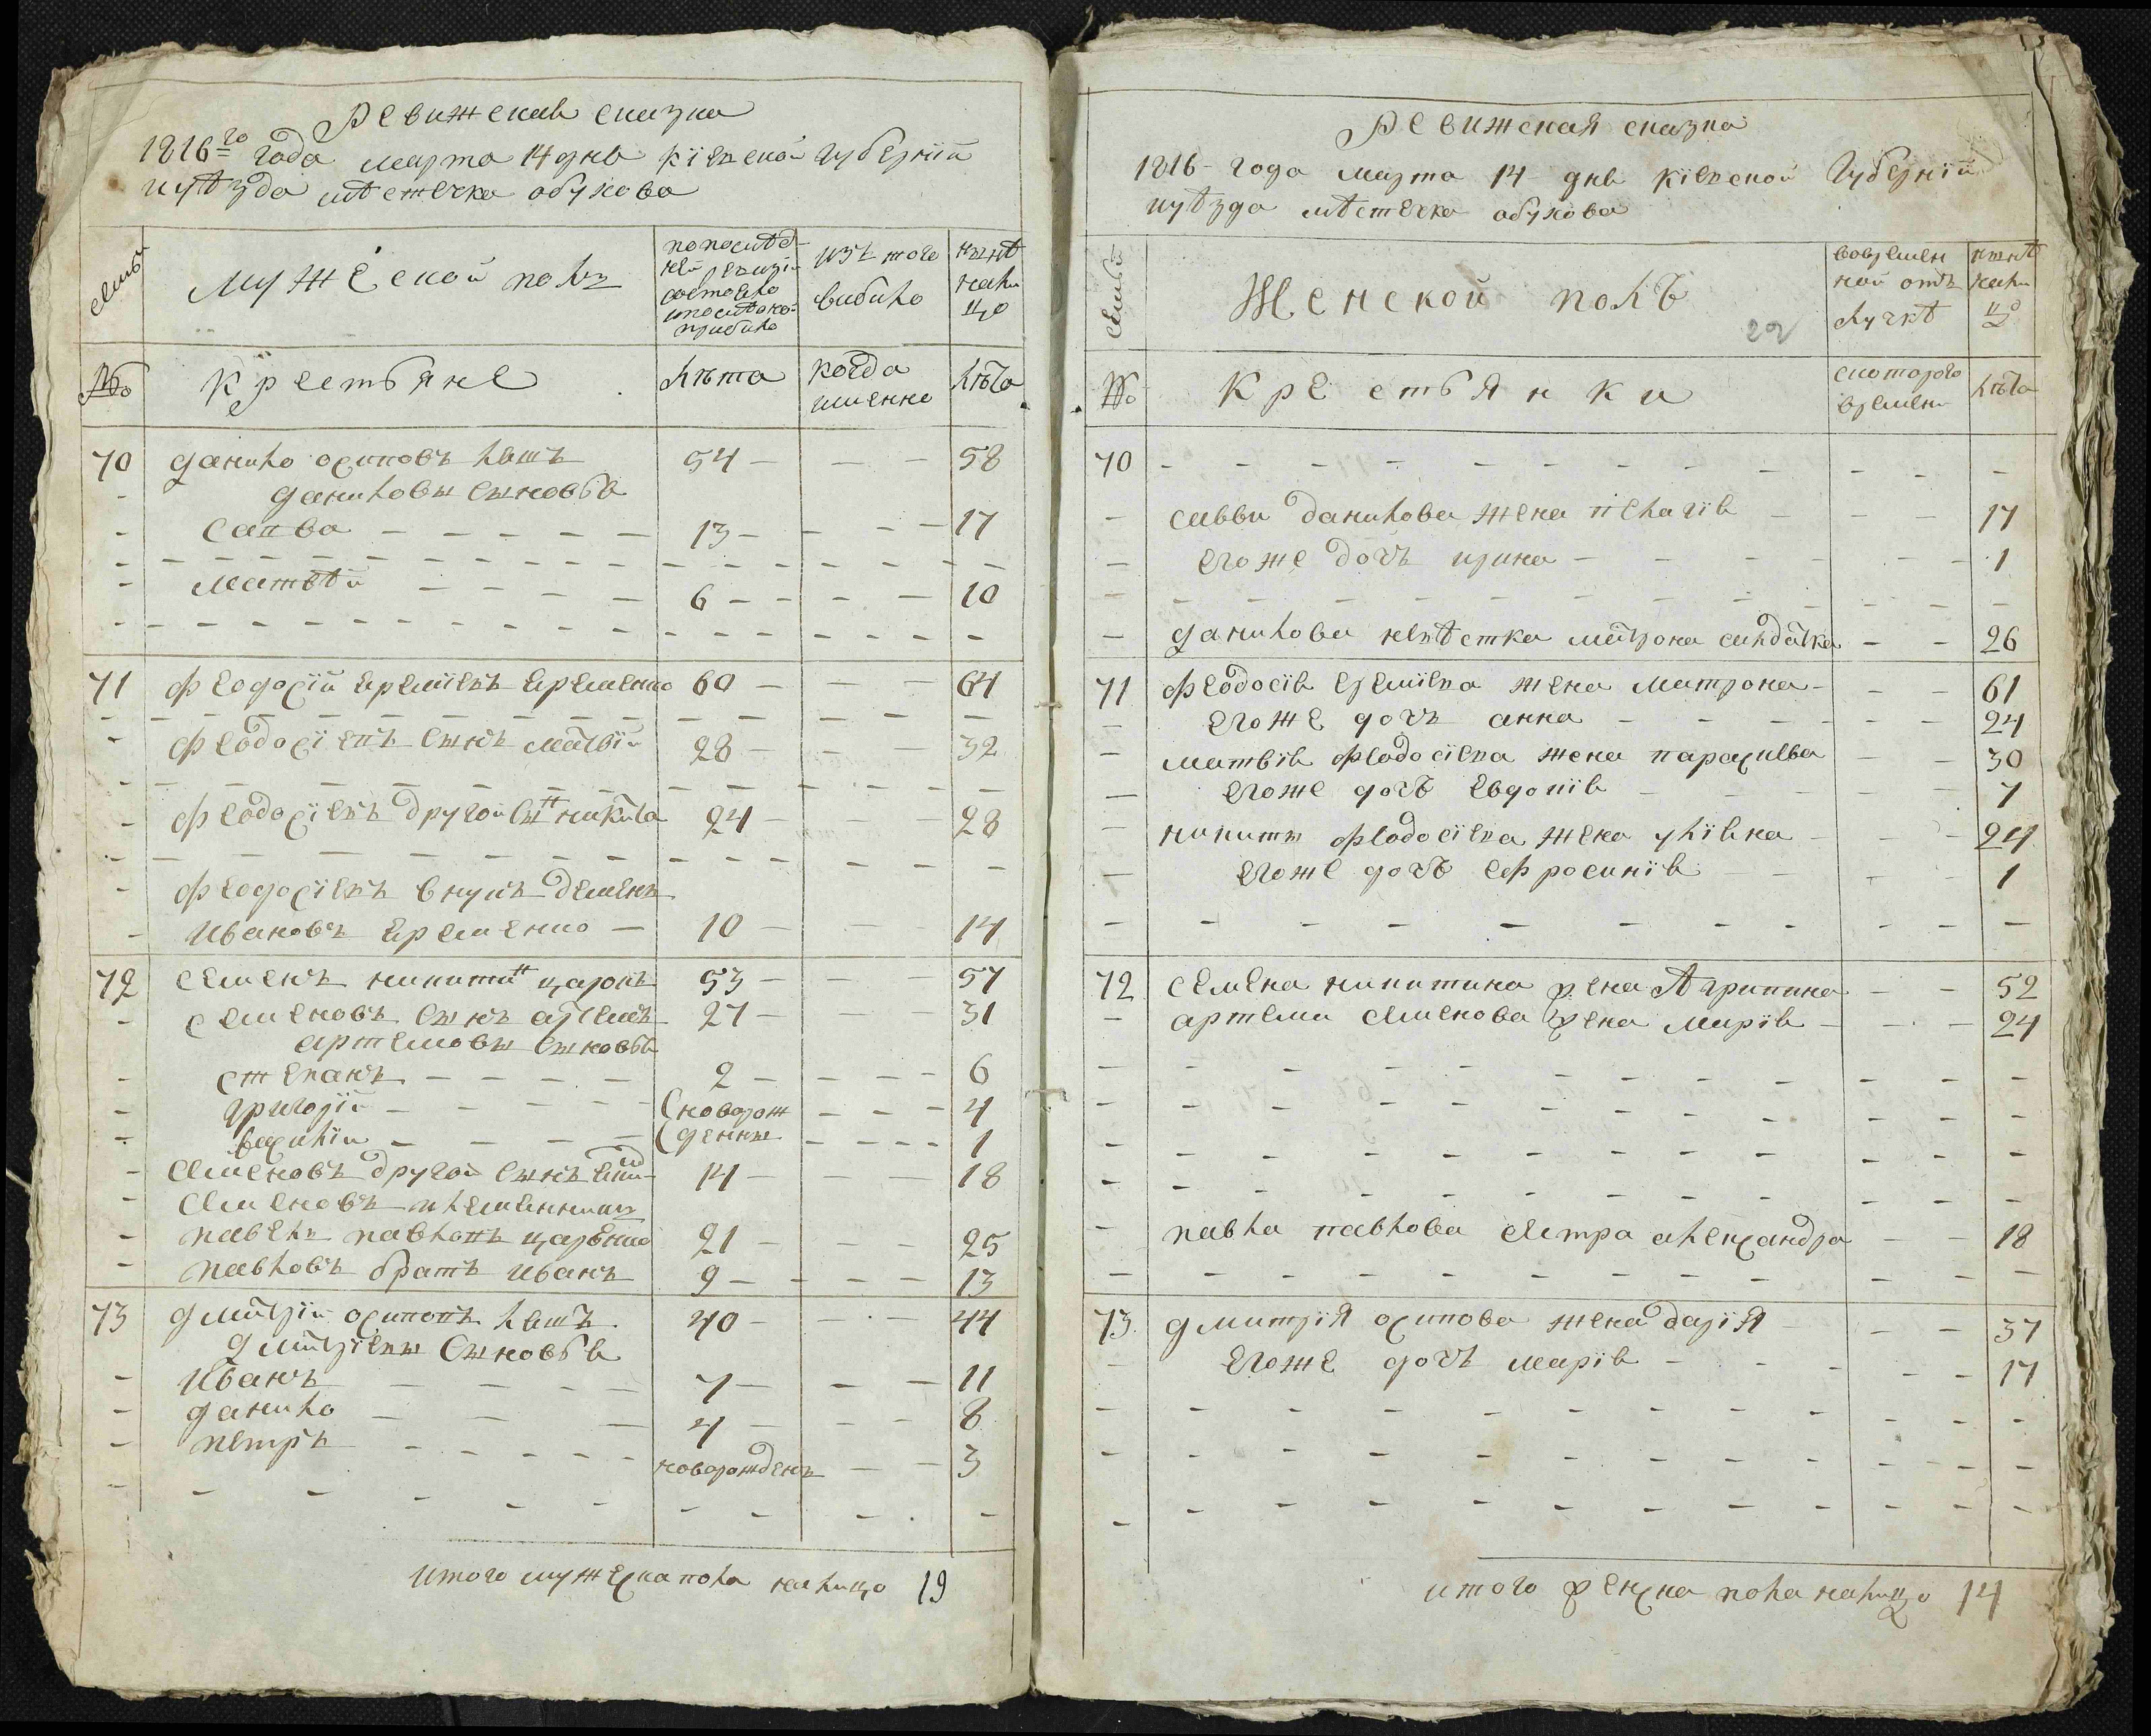 Ревижская сказка
1816го года марта 14 дня Кіевской губерніи
и уѣзда мѣстечка обухова
семьи
Мужеской полъ
попослѣд-
ней ревизіи
состояло
ипослѣ оной
прибыло
изъ того
выбыло
нынѣ
нали
цо
№
Крестьяне
лѣта
когда
именно
лѣта
70 Данило осиповъ Лышъ 54 — — — 58
Даниловы сыновья
- Савва — — — — — 13 — — — — 17
- Матвѣй — — — — 6 — — — — 10
71 Феодосій Еремѣевъ Еременко 60 — — — 64
- Феодосіевъ сынъ Матвій 28 — — — 32
- Феодосіевъ другой сынъ Никита 24 — — — 28
- Феодосіевъ внукъ Деменъ
- Ивановъ Еременко — 10 — — — 14
72 Семенъ Никитинъ царокъ 53 — — — 57
- Семеновъ сынъ Артемъ 27 — — — 31
Артемовы сыновья
- Степанъ — — — — — 2 — — — — 6
- Григорій — — — — новорож — — — 4
- Василій — — — — денны — — — — 1
- Семеновъ другой сынъ 14 — — — 18
- Семеновъ племенникъ
Павелъ Павловъ царенко 21 — — — 25
- Павловъ братъ Иванъ 9 — — — — 13
73 Дмитрій осиповъ Лышъ 40 — — — 44
Дмитріевы сыновья
- Иванъ — — — — 7 — — — 11
- Данило — — — 4 — — — 8
- Петръ — — — — — новорожденъ — — 3
итого мужеска пола налицо 19
Ревижская сказка
1816 - года марта 14 дня Кіевской губерніи
и уѣзда мѣстечка обухова
семьи
Женской полъ
22
вовремен
ной отъ
лучкѣ
нынѣ
нали
цо
№
Крестьянки
скоторого
времени
лѣта
70 - - - - - - - - - - - -
- Саввы Данилова жена Пелагія — — 17
- Егоже дочъ Ирина — — — — — 1
- Данилова невѣстка Матрона салдатка — — 26
71 Феодосія Еремѣева жена Матрона — — — 61
- Егоже дочъ Анна — — — — — 24
- Матвія Феодосіева жена Параскева — — 30
- Егоже дочъ Евдокія — — — — 7
- Никиты Феодосіева жена Уліяна — — — 24
- Егоже дочъ Ефросинія — — — 1
72 Семена Никитина жена Агрипина — — 52
- Артема Семенова жена Марія — — — 24
- Павла Павлова сестра Александра — — 18
73 Дмитрія осипова жена Дарія — — — 37
- Егоже дочъ Марія — — — — — 17
итого женска пола налицо 14